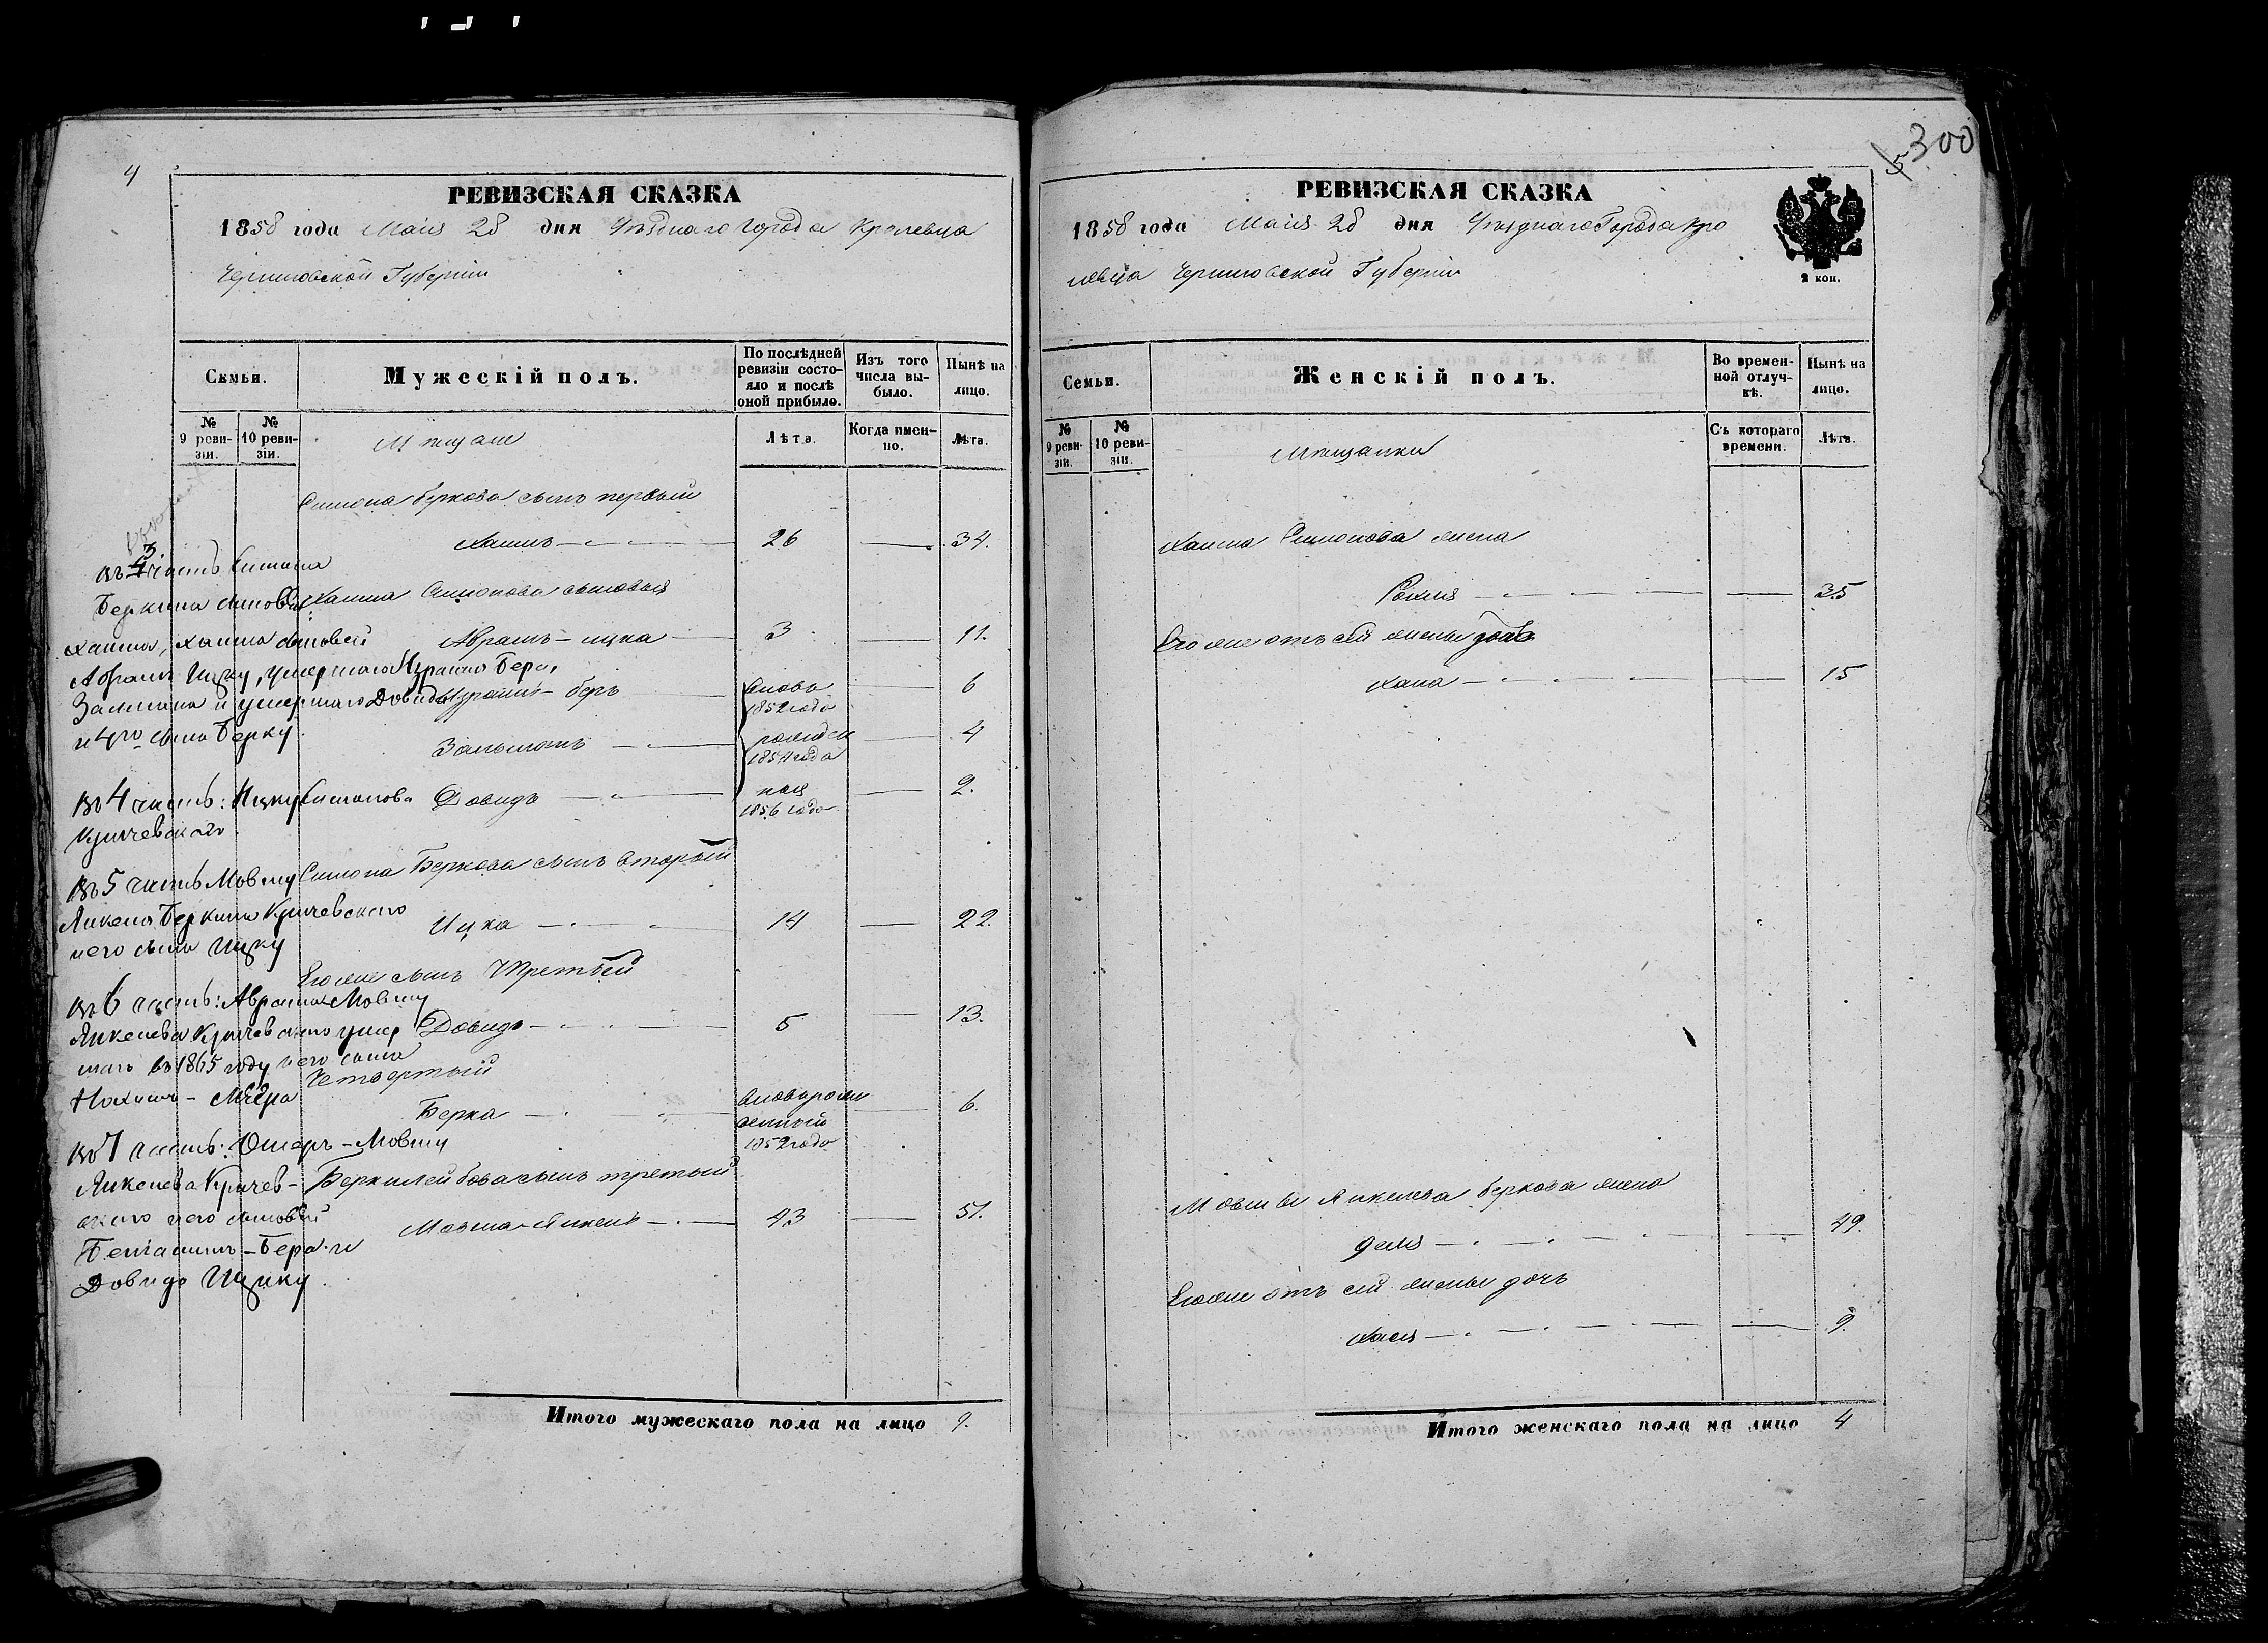 4
РЕВИЗСКАЯ СКАЗКА
1858 года Маія 28 дня Уѣзднаго Города Кролевца
Черниговской Губерніи
Семьи.
Мужескій полъ.
По послѣдней ревизіи состояло и послѣ оной прибыло.
Изъ того числа выбыло.
Нынѣ на лицо.
№ 9 ревизіи.
№ 10 ревизіи.
Мѣщане
Лѣта.
Когда именно.
Лѣта.
Симона Беркова сынъ первый
Хаимъ 26 34.
Хаима Симонова сыновья
Аврамъ-ицка 3 11.
Израиль-беръ вновь 1852 года 6
Залманъ рожден 1854 года 4
Довидъ ныя 1856 года 2.
Симона Беркова сынъ вторый
Ицка 14 22.
Его же сынъ Третьей
Довидъ 5 13.
Четвертый
Берка вноворожденный 1852 года 6.
Берки Лейбова сынъ третьий
Мовша-Янкель 43 51.
въ 3 часть Симона
Беркина сыновей
Хаима, Хаима сыновей
Аврамъ Ицку, умершаго Израиля Бера,
Залмана и умершаго Довида
и 4го сына Берку
въ 4 часть: Ицку Симонова
Кричевскаго
въ 5 часть Мовшу
Янкеля Беркина Кричевскаго
и его сына Ицку
въ 6 часть: Аврама Мовшу
Янкелева Кричевскаго умер
шаго въ 1865 году и его сына
Нохима-Меера
въ 7 часть: Ошеръ-Мовшу
Янкелева Кричев-
скаго и его сыновей
Беніаминъ-Бера и
Довида Ицку.
Итого мужескаго пола на лицо 9.
300
РЕВИЗСКАЯ СКАЗКА
1858 года Маія 28 дня Уѣзднаго Города Кро
левца Черниговской Губерніи
2 коп.
Семьи.
Женскій полъ.
Во временной отлучкѣ.
Нынѣ на лицо.
№ 9 ревизіи.
№ 10 ревизіи.
Мѣщанки
Съ котораго времени.
Лѣта.
Хаима Симонова жена
Рохля 35
Его же отъ сей жены дочь
Хана 15
Мовши Янкеля Беркова жена
49.
Его же отъ сей жены дочь
Хася 9.
Итого женскаго пола на лицо 4